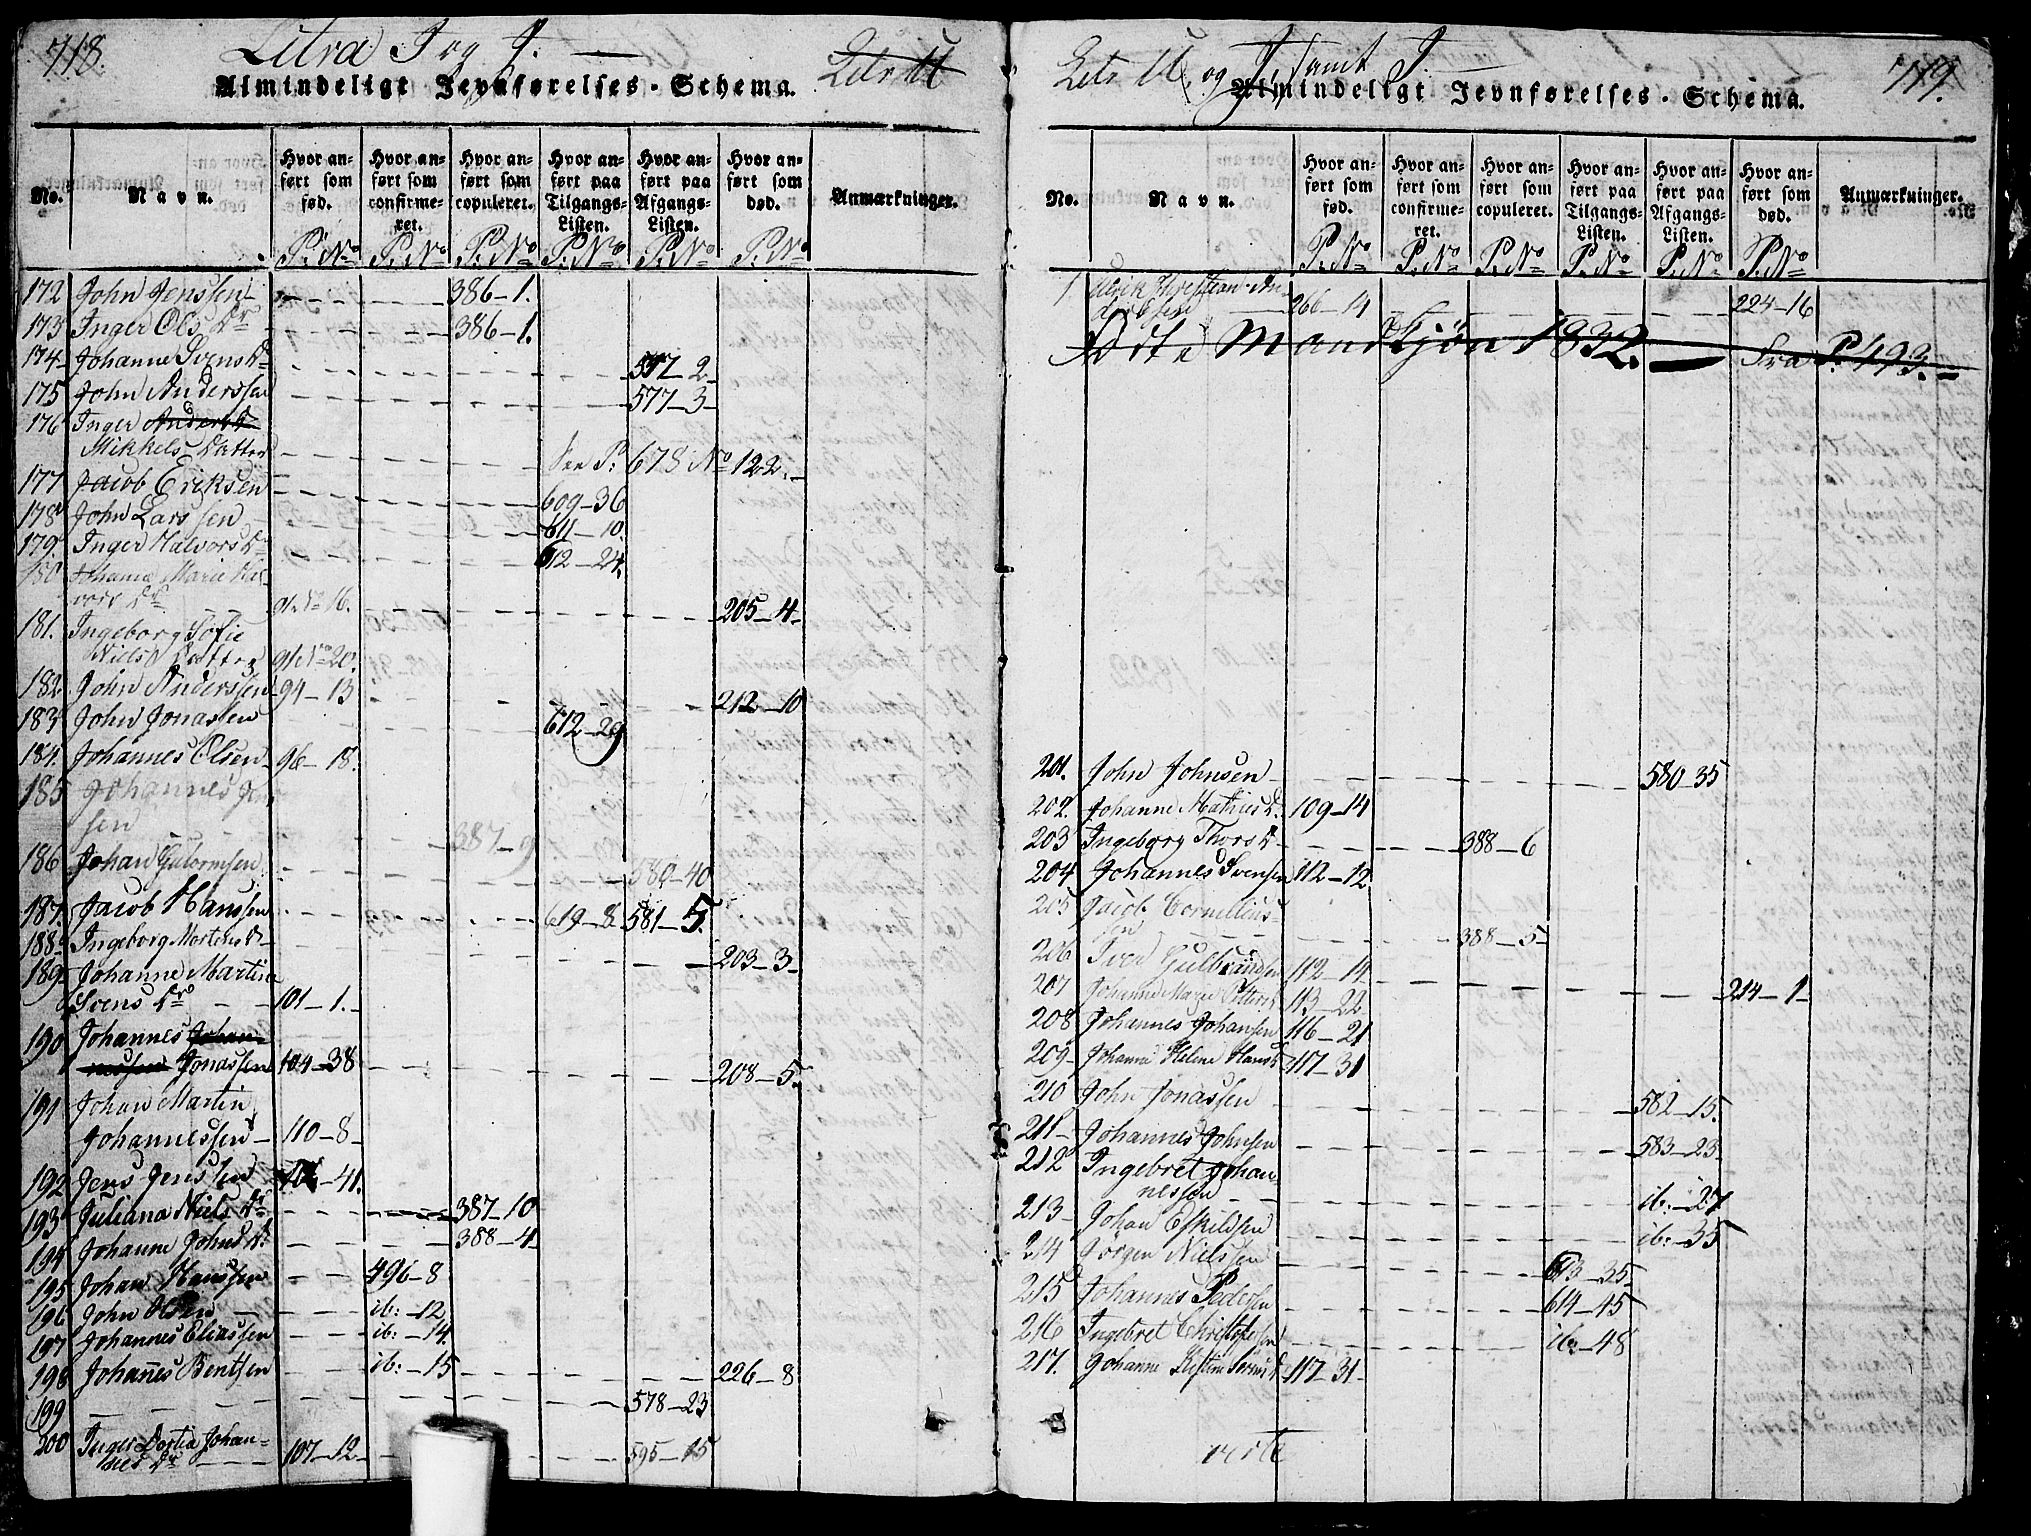 718.
Litra I og J.
Litr U
Almindeligt Jevnførelses-Schema.
No.
Navn.
Hvor anført som fød.
Hvor anført som confirmeret.
Hvor anført som copuleret.
Hvor anført paa Tilgangs-Listen.
Hvor anført paa Afgangs-Listen.
Hvor anført som død.
Anmærkninger.
P. No P. No P. No P. No P. No P. No
172 John Jenssen 386-1.
173 Inger Ols Dr 386-1.
174 Johanne Svens Dr 577-2
175 John Anderssen 577-3
176 Inger Anders Dr
Mikkels Datter See P. 678 No 122.
177 Jacob Eriksen 609-36
178 John Larssen 611-10.
179. Inger Halvors Dr 612-24.
180 Johanne Marie Hal-
vors Dr 91 No 16. 205-4
181. Ingeborg Sofie
Niels Datter 91 No 20.
182 John Anderssen 94-13 212-10
183 John Jonassen 612-29
184. Johannes Olsen 96-18.
185 Johannes Jen
sen 387-9
186 Johan Gutormsen 580-40
187. Jacob Hanssen 619-8 581-5.
188 Ingeborg Mortens Dr 203-3
189 Johanne Martine
Svens Dr 101-1.
190 Johannes Johan-
nessen Jonassen 104-38 208-5.
191 Johan Martin
Johannessen 110-8
192 Jens Jenssen 41.
193 Juliana Niels Dr 387-10
194 Johanne Johns Dr 388-4
195 Johan Hanssen 496-8
196 John Olsen ib:-12
197 Johannes Eliassen ib:-14.
198 Johanes Bentsen ib:-15 226-8
199 578-23
200 Inger Dortia Johan-
nes Dr 107-12 595-15
Litr U og J, samt J.
719.
Almindeligt Jevnførelses-Schema.
No.
Navn.
Hvor anført som fød.
Hvor anført som confirmeret.
Hvor anført som copuleret.
Hvor anført paa Tilgangs-Listen.
Hvor anført paa Afgangs-Listen.
Hvor anført som død.
Anmærkninger.
P. No P. No P. No P. No P. No P. No
1 Ulrik Christian An-
derssen 266-14 224-16
Fødte Mandkjøn 1832. Fra P. 493.
201. John Johnsen 580-35
202. Johanne Mathias D. 109-14
203 Ingeborg Thors D 388-6
204 Johannes Svensen 112-12
205 Jacob Cornelius-
sen 388-5
206 Iver Gulbrandsen 112-14
207 Johanne Marie Petters D 113-22 214-1
208 Johannes Johansen 116-21
209 Johanne Helene Hans D 117-31
210 John Jonassen 582-15.
211 Johannes Johnsen 583-23
212 Ingebret Johan-
nessen ib:-27
213 Johan Eskildsen ib:-35
214 Jörgen Nielssen 613-35
215 Johannes Pedersen 614-45
216 Ingebret Christophersen ib:-48
217. Johanne Kirstine Svens D 117-31
verte